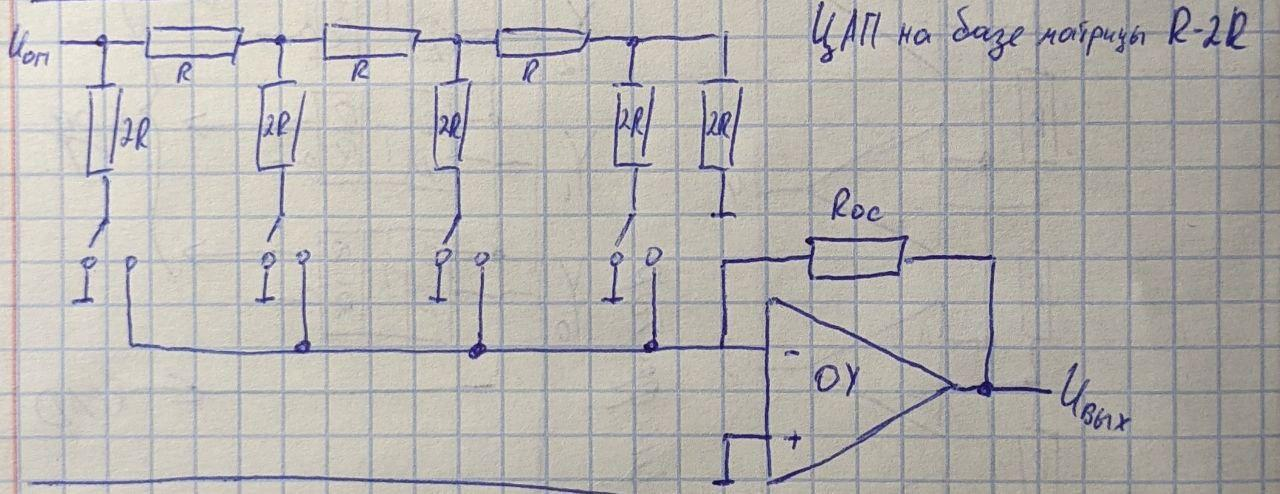 Uоп
ЦАП на базе матрицы R-2R
R
R
R
2R
2R
2R
2R
2R
Rос
-
ОУ
+
Uвых